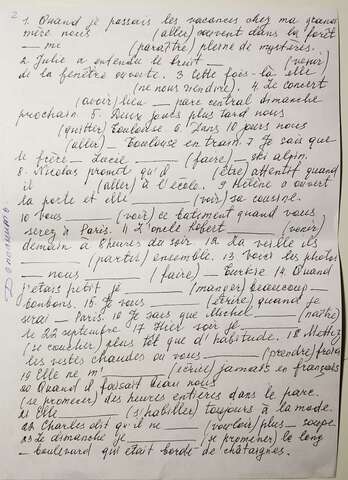 2
1. Quand je passais les vacances chez ma grand
mère nous ________ (aller) souvent dans la forêt
__ me ________ (paraître) pleine de mystères.
2. Julie a entendu le bruit __ ________ (venir)
de la fenêtre ouverte. 3 Cette fois-là elle
________ (ne nous rendre). 4. Le concert
________ (avoir) lieu __ parc central dimanche
prochain 5. Deux jours plus tard nous
________ (quitter) Toulouse 6. Dans 10 jours nous
________ (aller) __ Toulouse en train. 7 Je sais que
le frère __ Lucie ________ (faire) __ ski alpin.
8. Nicolas promit qu'il ________ (être) attentif quand
il ________ (aller) à l'école. 9 Hélène a ouvert
la porte et elle ________ (voir) sa cousine.
10 Vous ________ (voir) ce bâtiment quand vous
serez à Paris. 11 L'oncle Robert ________ (venir)
demain à 8 heures du soir. 12 La veille ils
________ (partir) ensemble. 13 Voici les photos
__ nous ________ (faire) __ Turkie 14. Quand
j'étais petit je ________ (manger) beaucoup __
bonbons. 15. Je vous ________ (écrire) quand je
serai __ Paris. 16 Je sais que Michel ________ (naître)
le 22 septembre 17 Hier soir je ________
(se coucher) plus tôt que d'habitude. 18 Mettez
les vestes chaudes ou vous ________ (prendre) froid
19 Elle ne m' ________ (écrire) jamais en français
20 Quand il faisait beau nous ________
(se promener) des heures entières dans le parc.
21 Elle ________ (s'habiller) toujours à la mode.
22 Charles dit qu'il ne ________ (vouloir) plus __ soupe
23 Le dimanche je ________ (se promener) le long
__ boulevard qui était bordé de châtaignes.